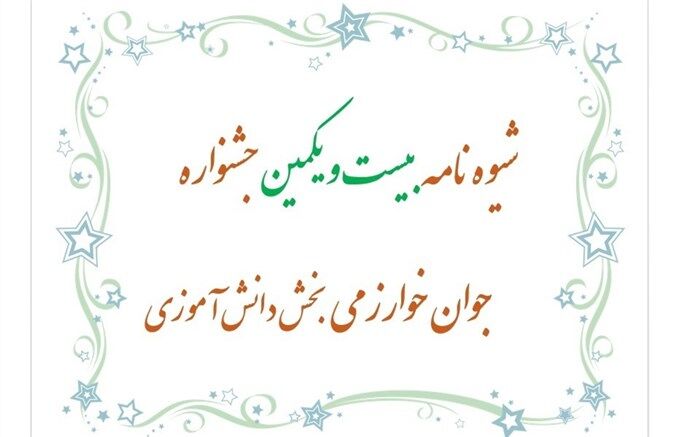 شیوه نامه بیست و یکمین جشنواره
جوان خوارزمی بخش دانش آموزی